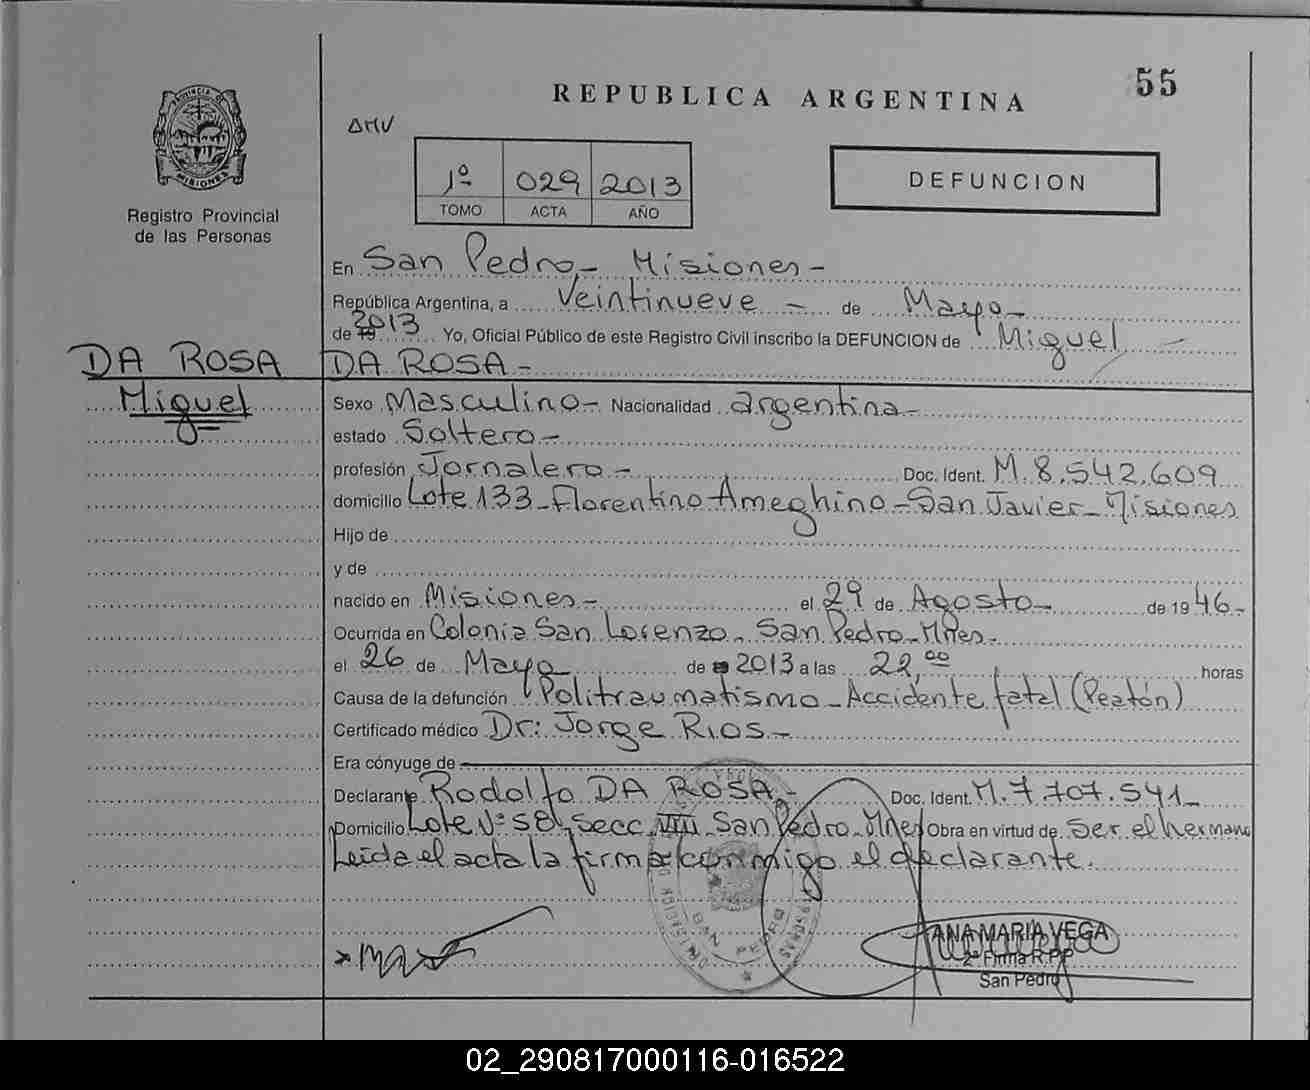 55
REPUBLICA ARGENTINA
PROVINCIA DE
MISIONES
Registro Provincial
de las Personas
AMV
1º 029 2013
TOMO ACTA AÑO
DEFUNCION
En San Pedro - Misiones -
República Argentina, a Veintinueve - de Mayo -
de 19 2013 Yo, Oficial Público de este Registro Civil inscribo la DEFUNCION de Miguel
DA ROSA DA ROSA -
Miguel
Sexo Masculino - Nacionalidad argentina -
estado Soltero -
profesión Jornalero - Doc. Ident. M. 8.542.609
domicilio Lote 133 - Florentino Ameghino - San Javier - Misiones
Hijo de
y de
nacido en Misiones - el 29 de Agosto - de 1946 -
Ocurrida en Colonia San Lorenzo - San Pedro - Mnes -
el 26 de Mayo de 2013 a las 22,00 horas
Causa de la defunción Politraumatismo - Accidente fatal (Peatón)
Certificado médico Dr: Jorge Rios -
Era cónyuge de
Declarante Rodolfo DA ROSA - Doc. Ident. M. 7.707.541 -
Domicilio Lote Nº 58, Secc. VIII - San Pedro - Mnes Obra en virtud de Ser el hermano
Leída el acta la firma conmigo el declarante.
SAN PEDRO
ANA MARIA VEGA
2ª Firma R.P.P
San Pedro
02_290817000116-016522